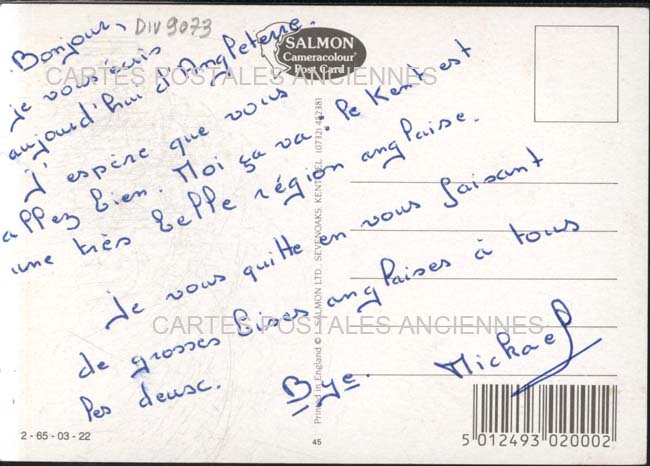 DIV 9073
Bonjour,
je vous écris
aujourd'hui d'Angleterre.
J'espère que vous
allez bien. Moi ça va. Le Kent est
une très belle région anglaise.
Je vous quitte en vous faisant
de grosses bises anglaises à tous
les deux.
Bye. Mickael
SALMON
Cameracolour
Post Card
CARTES POSTALES ANCIENNES
CARTES POSTALES ANCIENNES
Printed in England © J. SALMON LTD., SEVENOAKS, KENT. TEL. (0732) 452381
2-65-03-22
45
5 012493 020002